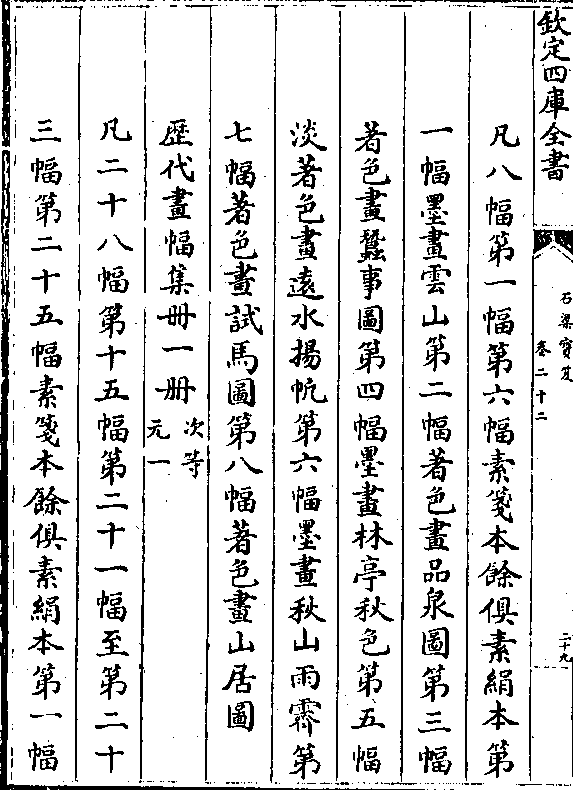 欽定四庫全書
石渠寶笈
卷二十二
二十九
凡八幅第一幅第六幅素箋本餘俱素絹本第
一幅墨畫雲山第二幅著色畫品泉圖第三幅
著色畫蠶事圖第四幅墨畫林亭秋色第五幅
淡著色畫遠水揚帆第六幅墨畫秋山雨霽第
七幅著色畫試馬圖第八幅著色畫山居圖
歷代畫幅集冊一冊 次等元一
凡二十八幅第十五幅第二十一幅至第二十
三幅第二十五幅素箋本餘俱素絹本第一幅